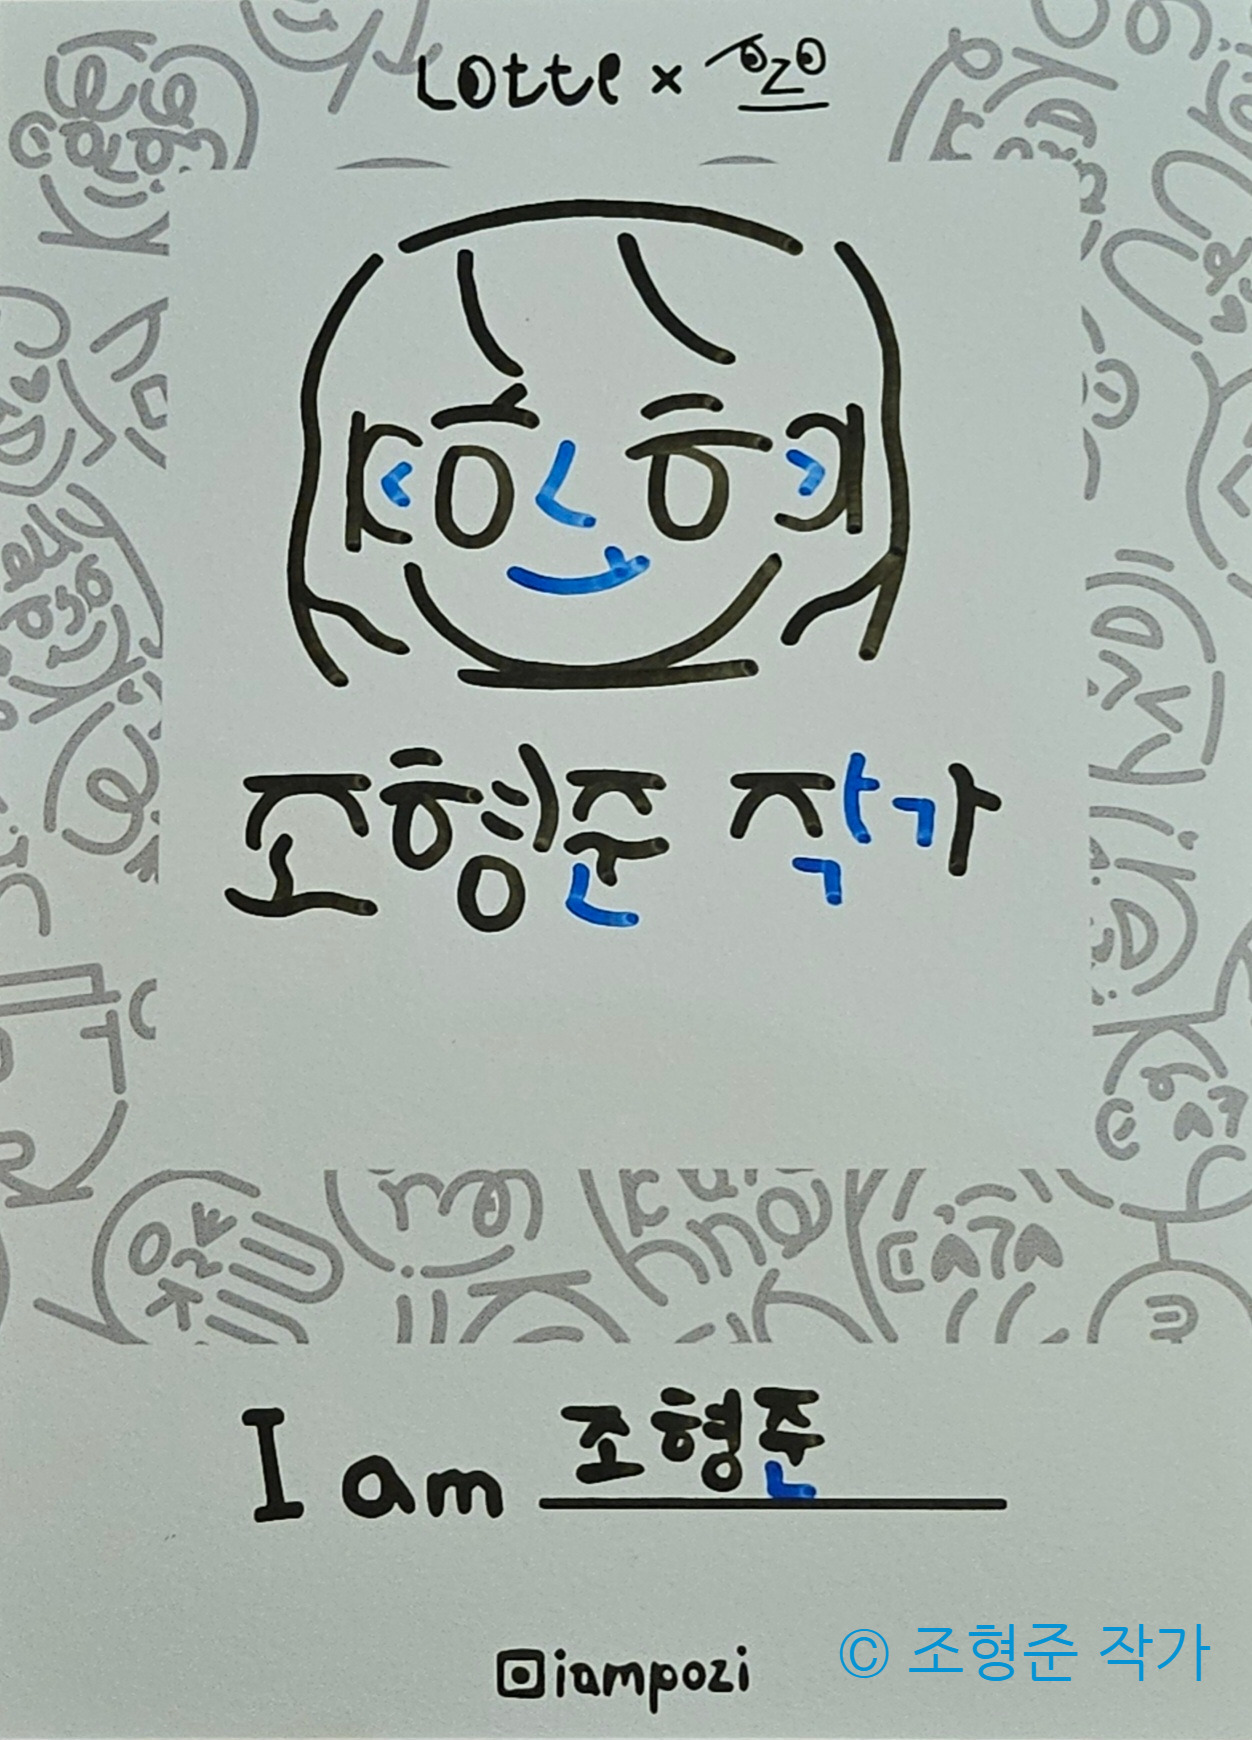 Lotte x
조형준 작가
I am 조형준
iampozi
© 조형준 작가